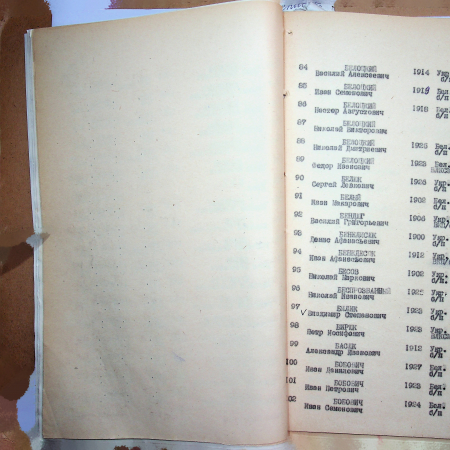 84 БЕЛОЦКИЙ
Василий Алексеевич 1914 Укр.
б/п
85 БЕЛОЦКИЙ
Иван Семенович 1919 Бел.
б/п
86 БЕЛОЦКИЙ
Нестор Августович 1918 Бел.
б/п
87 БЕЛОЦКИЙ
Николай Викторович
88 БЕЛОЦКИЙ
Николай Дмитриевич 1925 Бел.
б/п
89 БЕЛОЦКИЙ
Федор Иванович 1925 Бел.
90 БЕЛЯК
Сергей Львович 1926 Укр.
б/п
91 БЕЛЫЙ
Иван Макарович 1902 Бел.
б/п
92
Василий Григорьевич 1906 Укр.
93
Денис Афанасьевич 1900 Укр.
94
Иван Афанасьевич 1912 Укр.
95 БЕСОВ
Николай Маркович 1902 Укр.
б/п
96
Николай Иванович Укр.
б/п
97 БИЛИК
Владимир Степанович 1923 Укр.
б/п
98 БИРЮК
Петр Иосифович 1923 Укр.
99 БАСАК
Александр Иванович 1912 Укр.
б/п
100 БОБОВИЧ
Иван Данилович 1927 Бел.
б/п
101 БОБОВИЧ
Иван Петрович 1923 Бел.
б/п
02 БОБОВИЧ
Иван Симонович 1924 Бел.
б/п